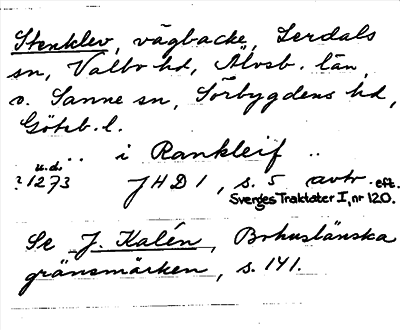 Stenklev, vägbacke, Lerdals
sn, Valbo hd, Älvsb. län,
o. Sanne sn, Sörbygdens hd,
Göteb. l.
.. .. i Rankleif ..
u.d.
? 1273 JHD 1, s. 5 avtr. eft.
Sverges Traktater I, nr 120.
Se J. Kalén, Bohuslänska
gränsmärken, s. 141.